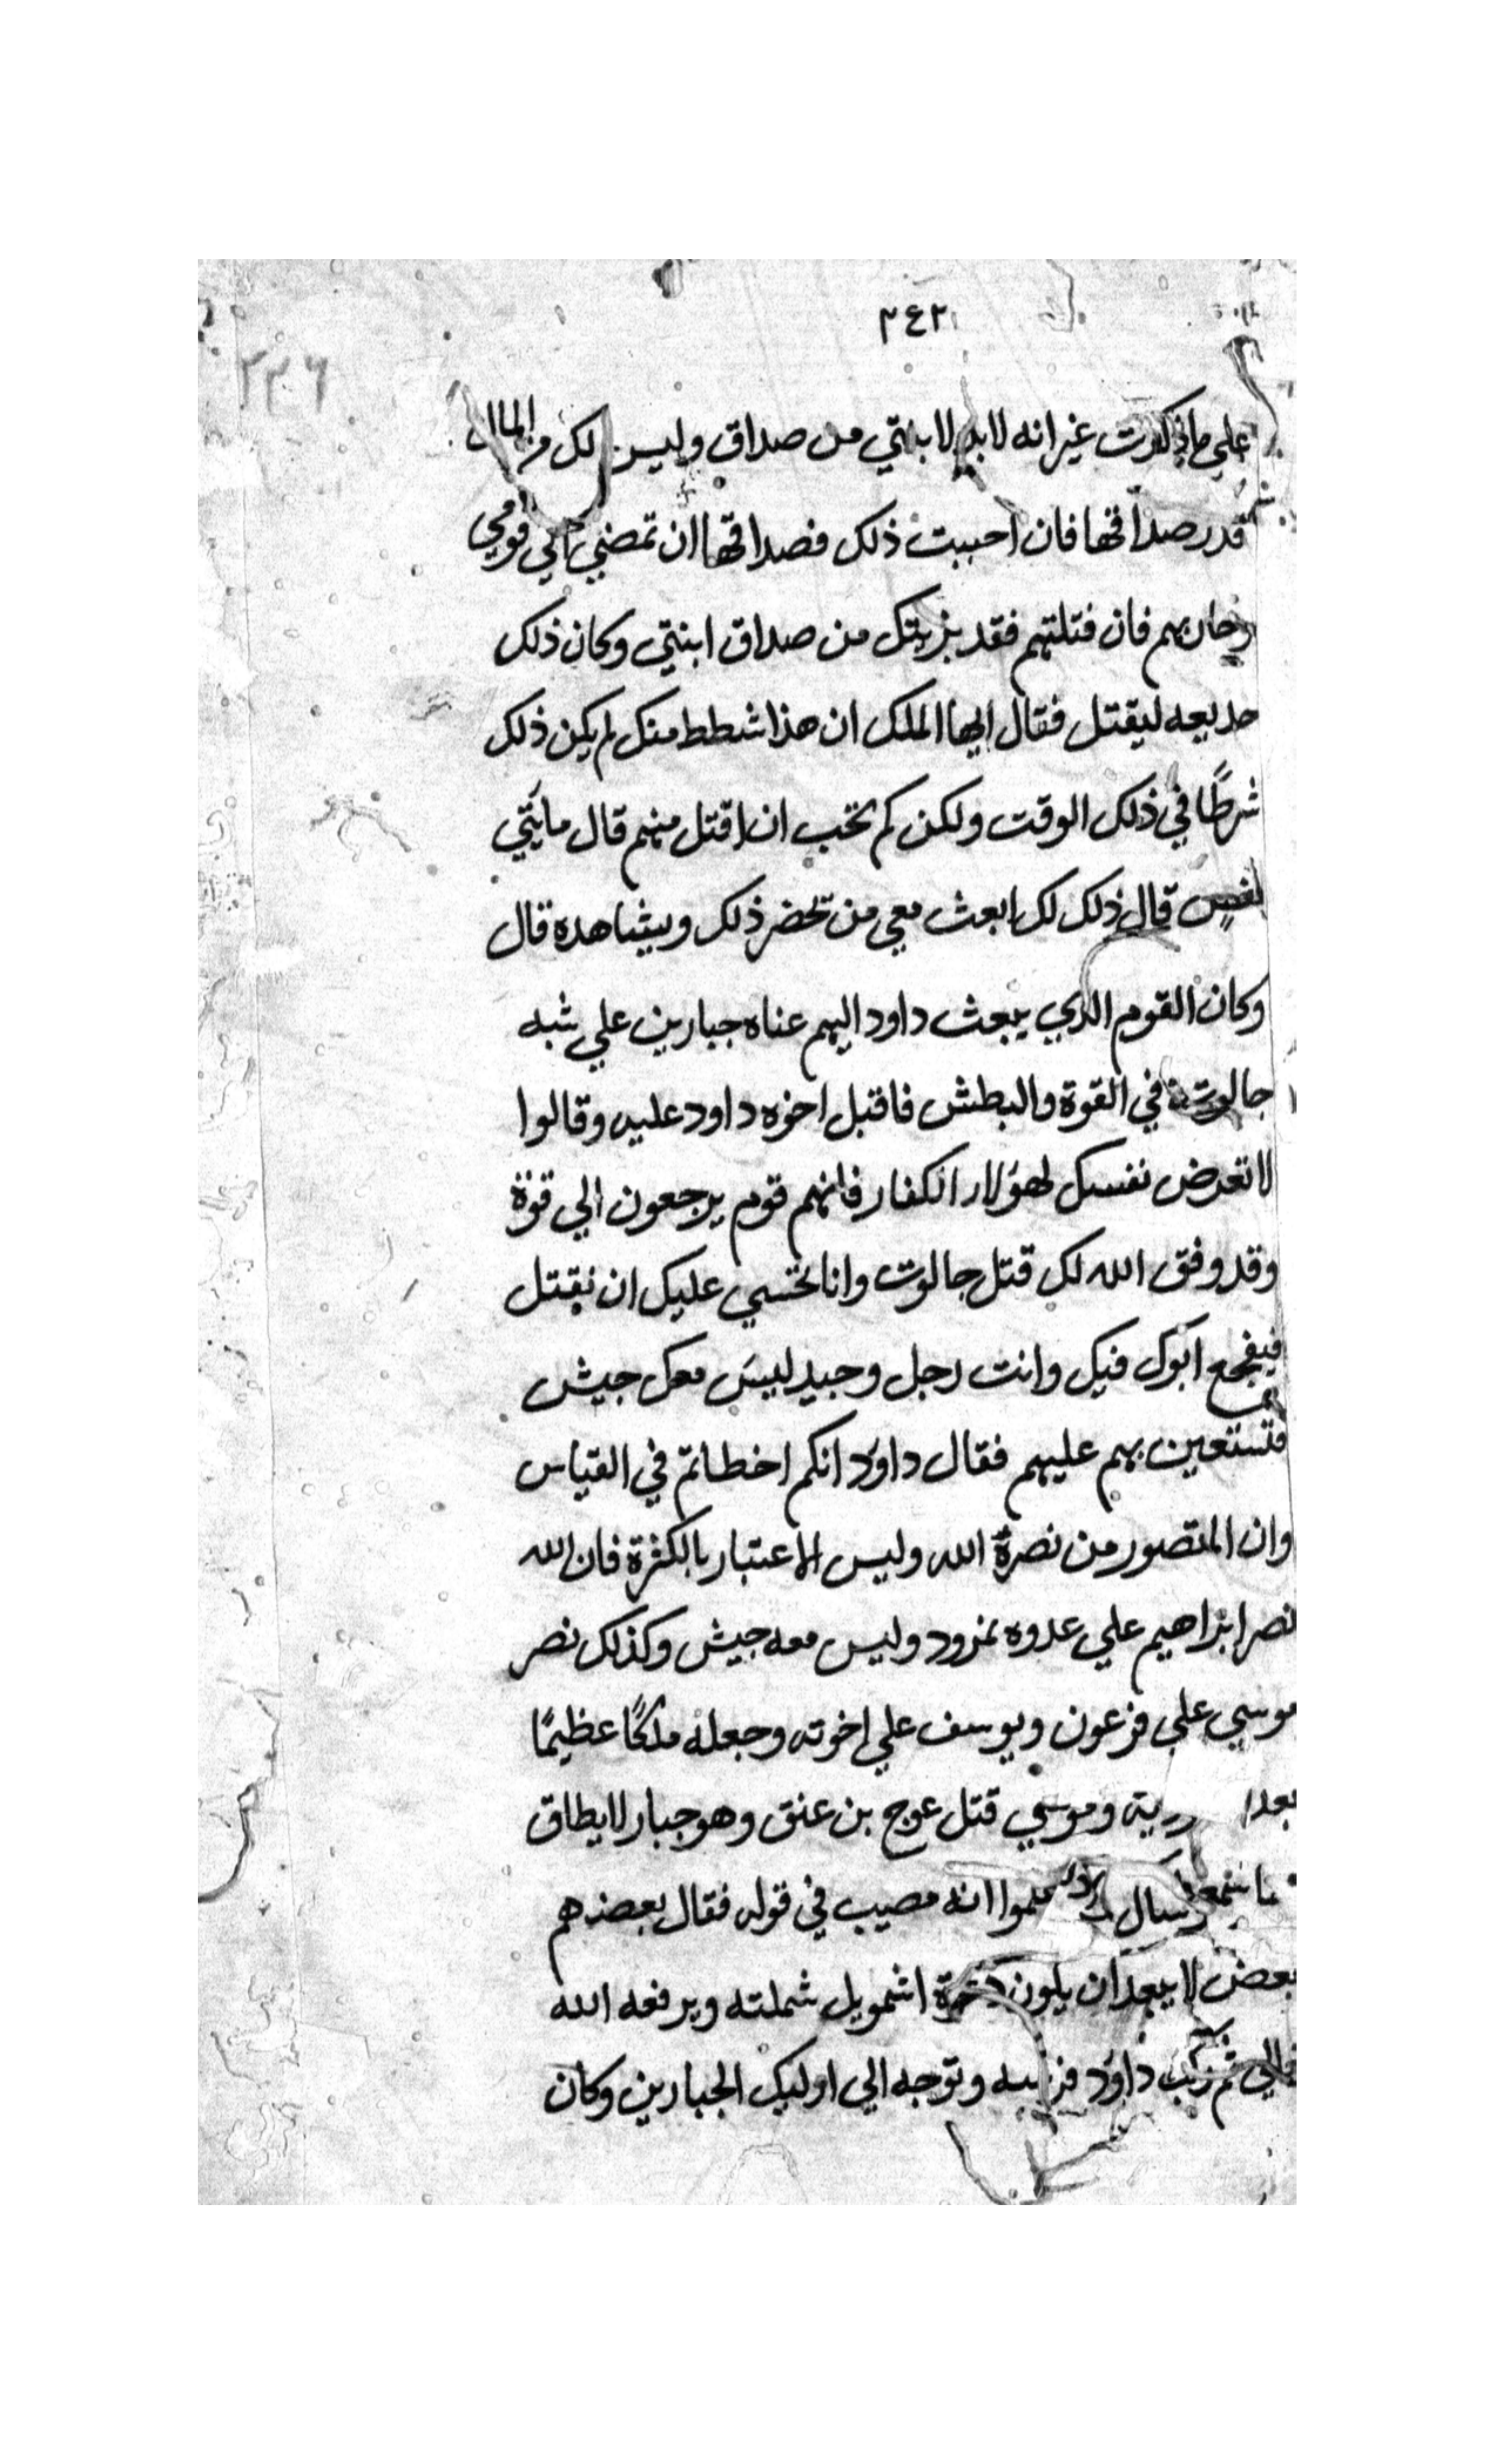 ٢٤٢
٢٣٦
علي ماذكرت غير انه لابد لابنتي من صداق وليس لك من المال
قدر صداقها فان احببت ذلك فصداقها ان تمضي الي قومي
وحاربهم فان قتلتهم فقد بريتك من صداق ابنتي وكان ذلك
خديعه ليقتل فقال ايها الملك ان هذا شطط منك لم يكن ذلك
شرطًا في ذلك الوقت ولكن كم تحب ان اقتل منهم قال مايتي
نفس قال ذلك لك ابعث معي من تحضر ذلك ويشاهده قال
وكان القوم الدي يبعث داود اليهم عتاه جبارين علي شبه
جالوت في القوة والبطش فاقبل اخوه داود عليه وقالوا
لا تعرض نفسك لهؤلاء الكفار فانهم قوم يرجعون الي قوة
وقد وفق الله لك قتل جالوت وانا نخشي عليك ان نقتل
فيفجع ابوك فيك وانت رجل وحيد ليس معك جيش
فتستعين بهم عليهم فقال داود انكم اخطاتم في القياس
وان المنصور من نصرة الله وليس الاعتبار بالكثرة فان الله
نصر ابراهيم علي عدوه نمرود وليس معه جيش وكذلك نصر
موسي علي فرعون ويوسف علي اخوته وجعله ملكًا عظيمًا
وموسي قتل عوج بن عنق وهو جبار لا يطاق
علموا انه مصيب في قوله فقال بعضهم
بعض لا يبعد ان يكون اشمويل شملته ويرفعه الله
ثم ركب داود فرسه وتوجه الي اوليك الجبارين وكان